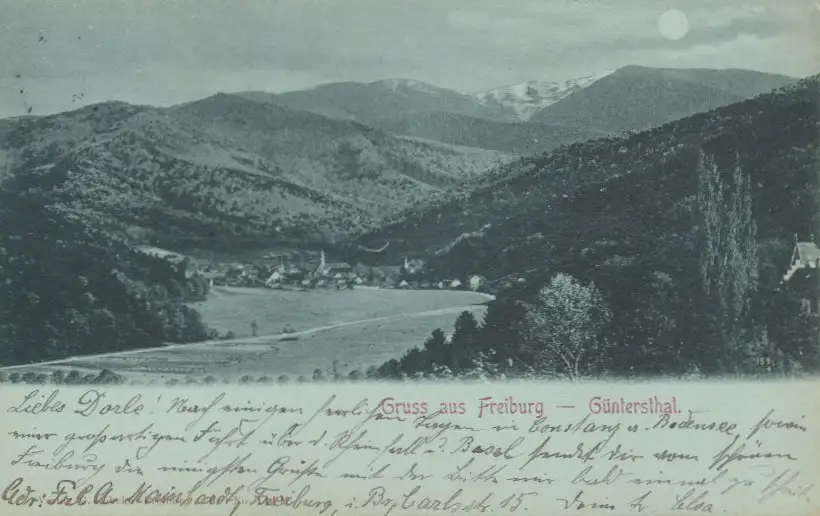 Gruss aus Freiburg — Güntersthal.
Liebes Dorle! Nach einigen herrlichen Tagen in Constanz u. Bodensee sowie
einer großartigen Fahrt über d. Rheinfall u. Basel sendet Dir vom schönen
Freiburg die innigsten Grüße mit der Bitte mir bald einmal zu schreiben
Adr. Frl. A. Mainhardt, Freiburg, i. Br. Carlsstr. 15. Deine tr. Elsa.